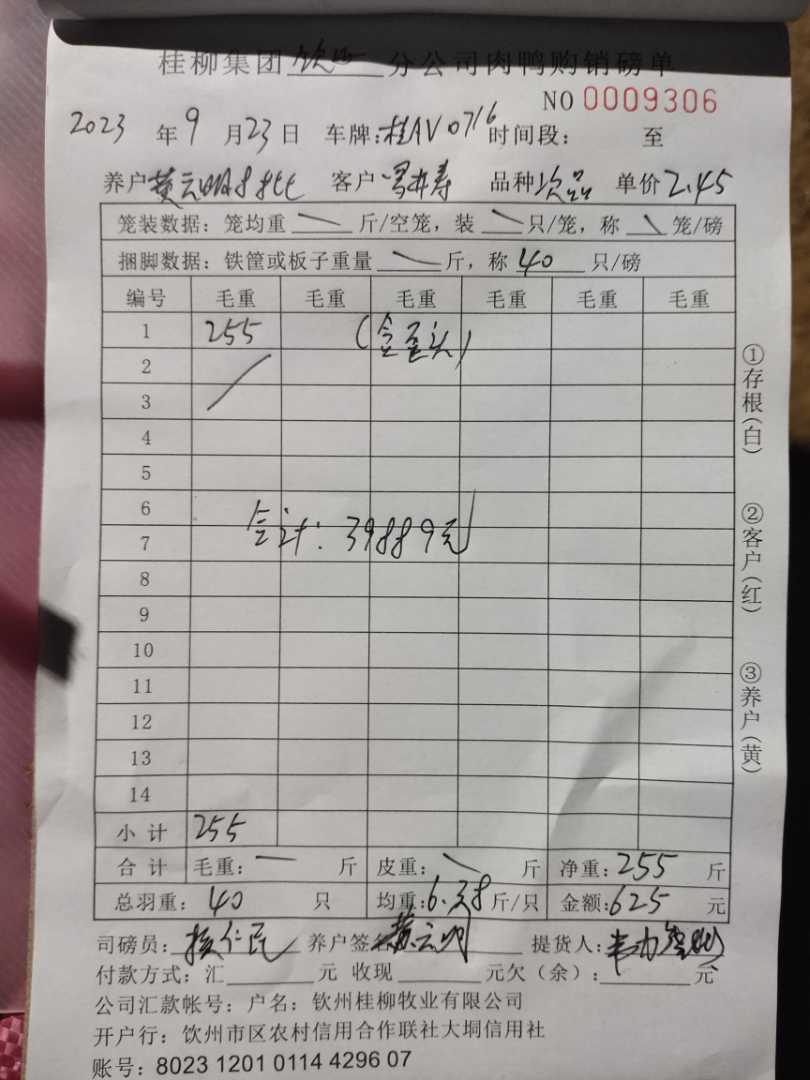 桂柳集团 钦州 分公司肉鸭购销磅单
NO 0009306
2023 年 9 月 23 日 车牌: 桂AV0716 时间段: 至
养户 黄云明 客户 寿 品种 次品 单价 2.45
笼装数据: 笼均重 — 斤/空笼, 装 — 只/笼, 称 — 笼/磅
捆脚数据: 铁筐或板子重量 — 斤, 称 40 只/磅
编号 毛重 毛重 毛重 毛重 毛重 毛重
1 255 (含歪头)
2
3
4
5
6
合计: 39889元
7
8
9
10
11
12
13
14
小计 255
合计 毛重: — 斤 皮重: — 斤 净重: 255 斤
总羽重: 40 只 均重: 6.38 斤/只 金额: 625 元
司磅员: 养户签 黄云明 提货人:
付款方式: 汇 元 收现 元欠(余): 元
公司汇款帐号: 户名: 钦州桂柳牧业有限公司
开户行: 钦州市区农村信用合作联社大垌信用社
账号: 8023 1201 0114 4296 07
①存根(白)
②客户(红)
③养户(黄)